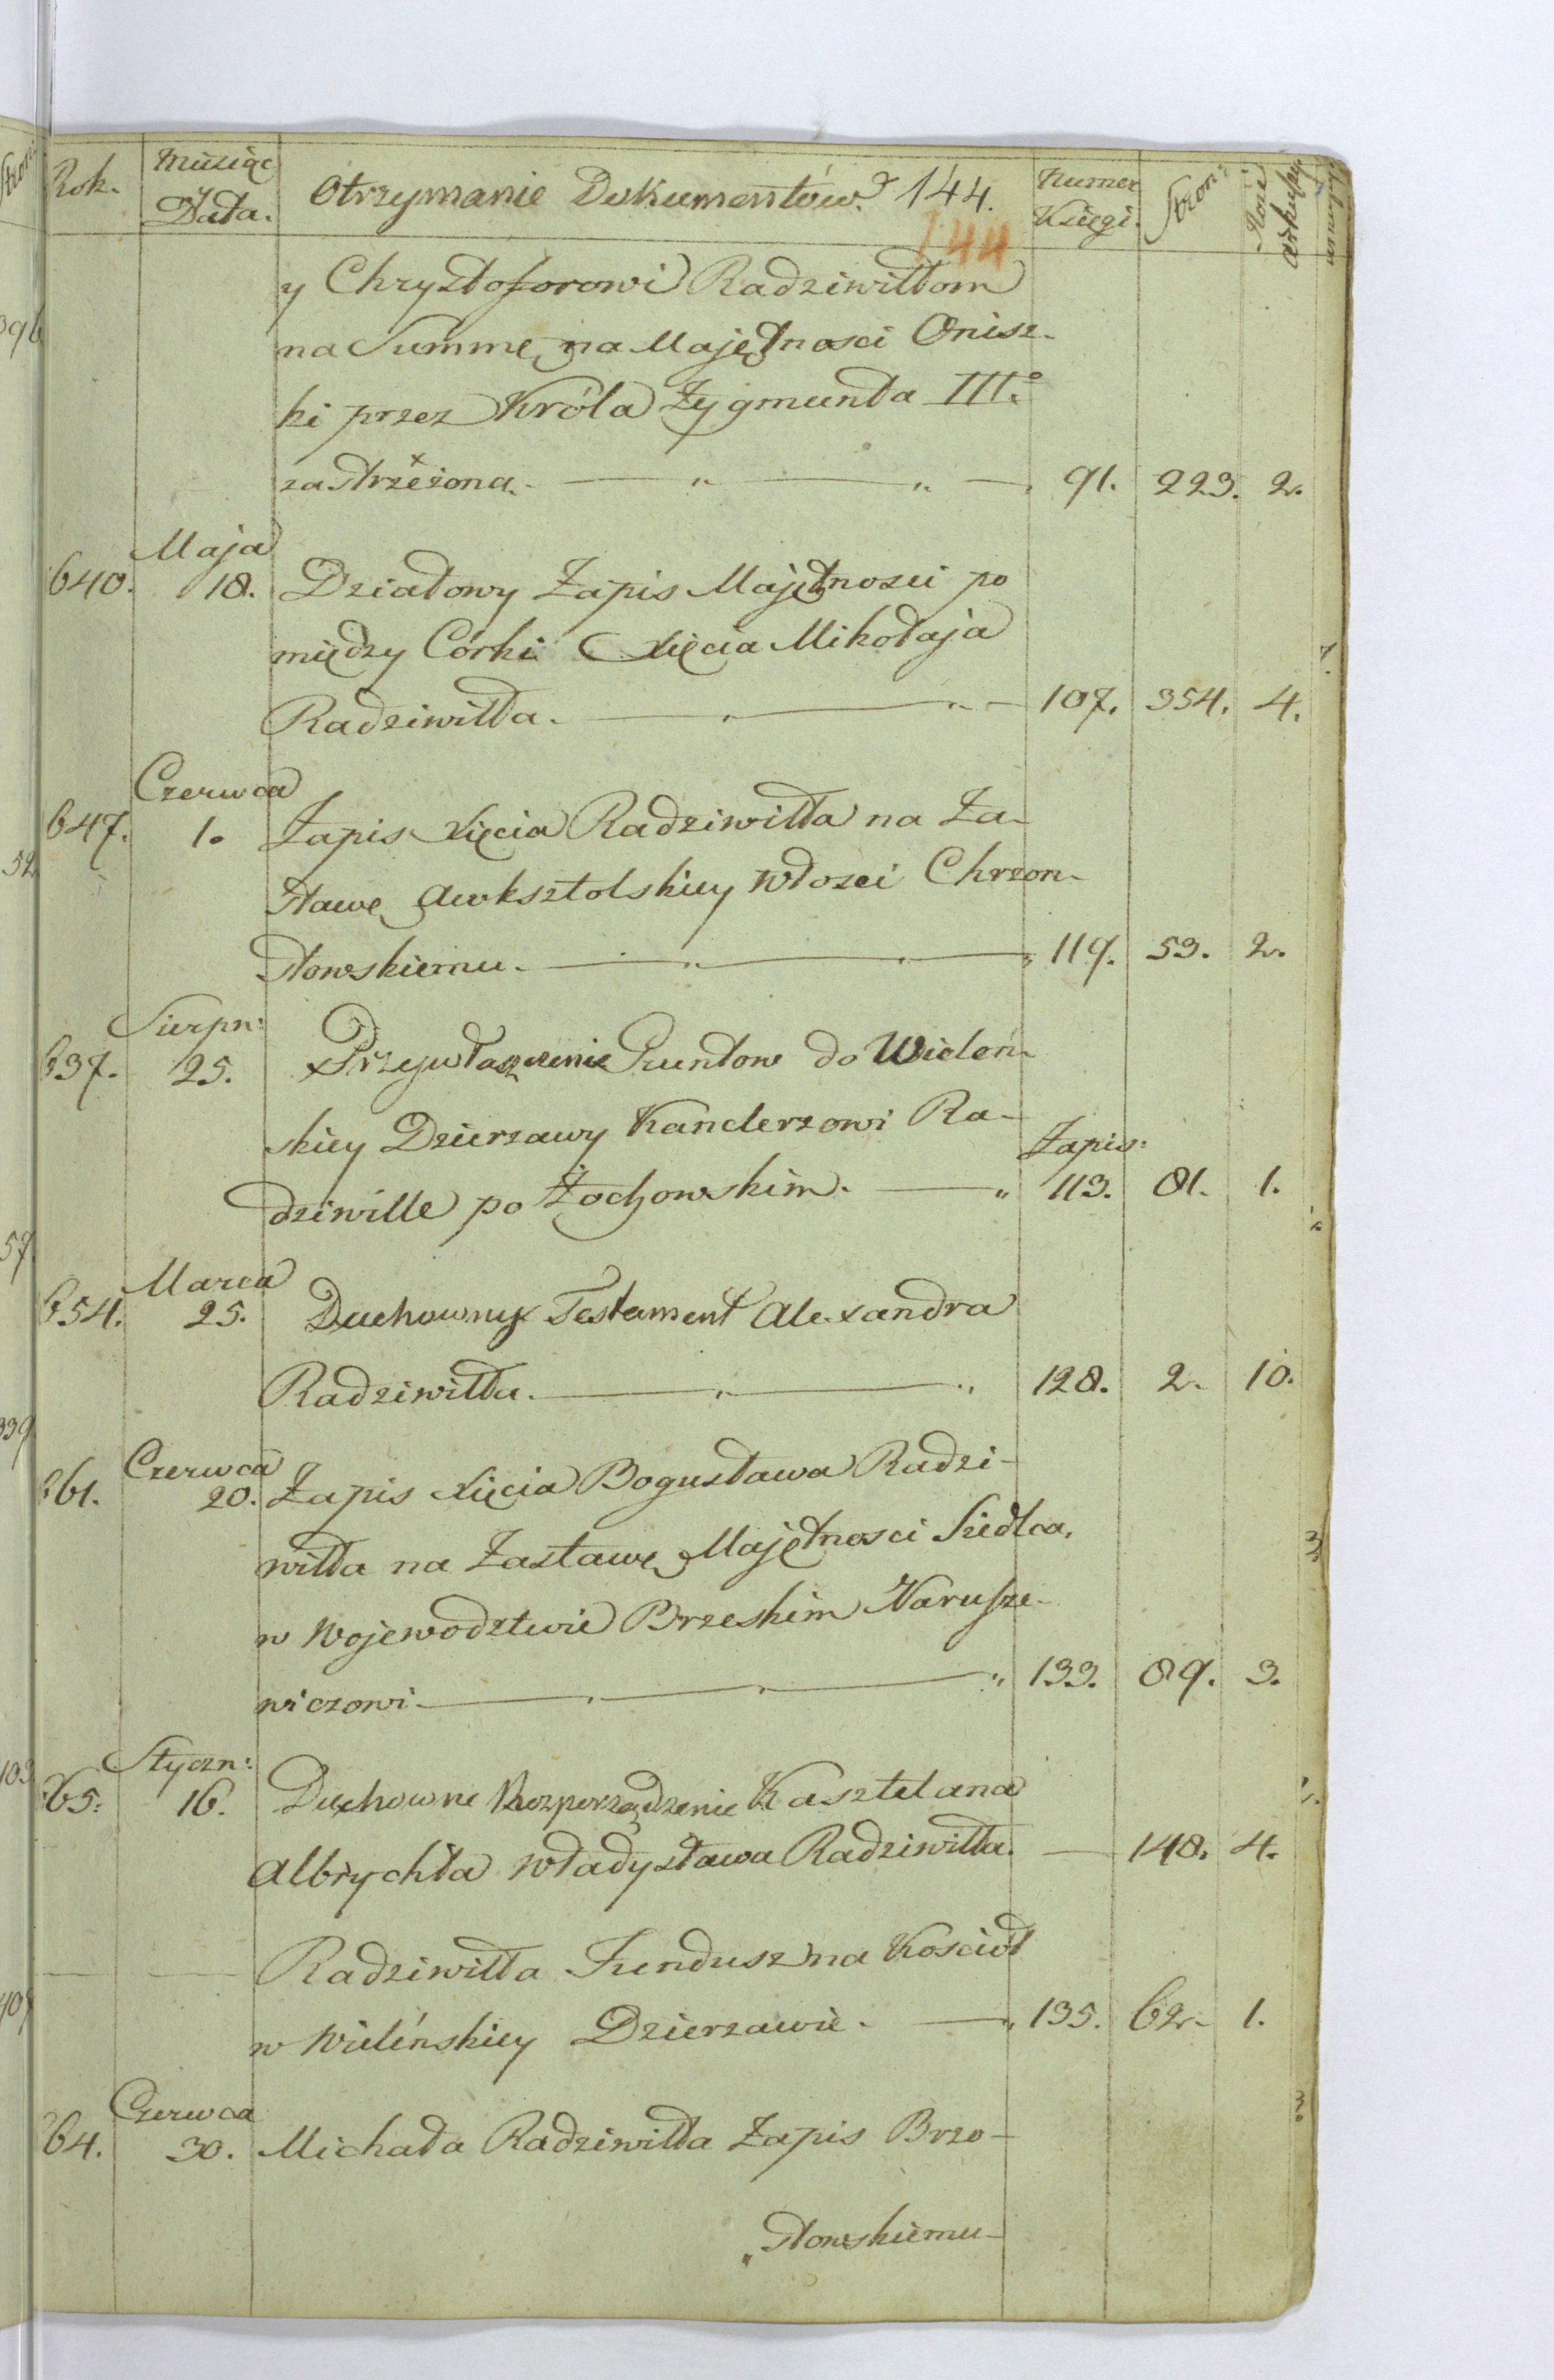 Rok. Miesiąc y Data. Otrzymanie Dokumentów. 144. Numer Księgi. Stron: Ilość arkuszy
144
y Chrysztoforowi Radziwiłłom
na Summę na Majętnosci Onisz-
ki przez Króla Zygmunta III.°
zastrzeżoną. 91. 223. 2.
Maja
640. 18. Działowy Zapis Majętnosci po
między Córki Xięcia Mikołaja
Radziwiłła. 107. 354. 4.
Czerwca
647. 1. Zapis Xięcia Radziwiłła na Za-
stawę Awksztolskiey Włosci Chrzon-
stowskiemu. 119. 53. 2.
Sierpn:
637. 25. Przywłaszczenie Gruntow do Wideń-
skiey Dzierzawy Kanclerzowi Ra-
Zapis:
dziwille po Żochowskim. 113. 81. 1.
Marca
654. 25. Duchowny Testament Alexandra
Radziwiłła. 128. 2. 10.
Czerwca
661. 20. Zapis Xięcia Bogusława Radzi-
wiłła na Zastawę Majętnosci Siedlca,
w Wojewodztwie Brzeskim Narusze-
wiczowi 133. 89. 3.
Styczn:
65. 16. Duchowne Rozporządzenie Kasztelana
Albrychta Władysława Radziwiłła. 148. 4.
Radziwiłła Fundusz na Kosciół
w Wieleńskiey Dzierzawie. 135. 62. 1.
Czerwca
64. 30. Michała Radziwiłła Zapis Brzo-
stowskiemu